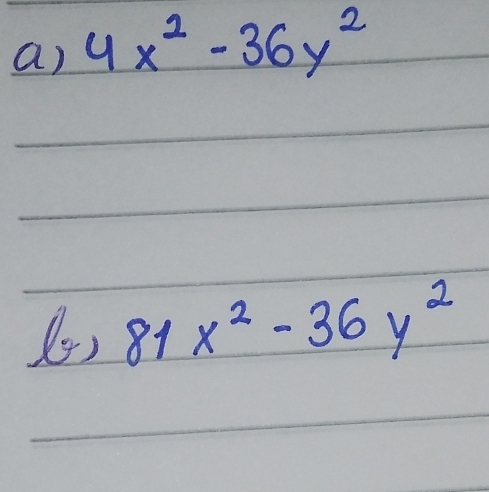 a) 4x² - 36y²
b) 81x² - 36y²